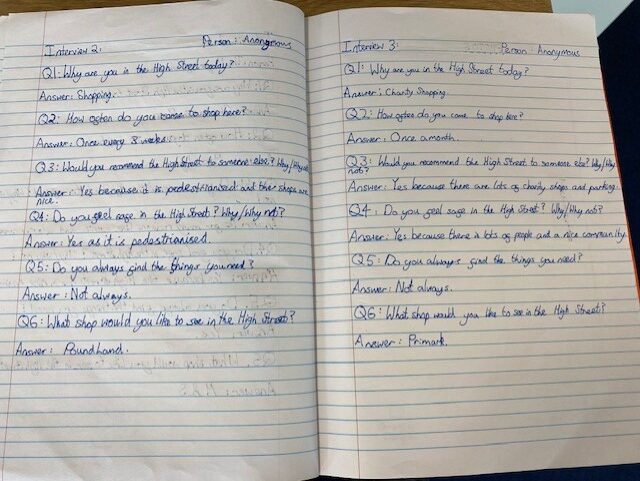 Interview 2: Person: Anonymous
Q1: Why are you in the High Street today?
Answer: Shopping.
Q2: How often do you come to shop here?
Answer: Once every 3 weeks.
Q3: Would you recommend the High Street to someone else? Why/Why not?
Answer: Yes because it is pedestrianised and the shops are
nice.
Q4: Do you feel safe in the High Street? Why/Why not?
Answer: Yes as it is pedestrianised.
Q5: Do you always find the things you need?
Answer: Not always.
Q6: What shop would you like to see in the High Street?
Answer: Poundland.
Interview 3: Person: Anonymous
Q1: Why are you in the High Street today?
Answer: Charity Shopping.
Q2: How often do you come to shop here?
Answer: Once a month.
Q3: Would you recommend the High Street to someone else? Why/Why
not?
Answer: Yes because there are lots of charity shops and parking.
Q4: Do you feel safe in the High Street? Why/Why not?
Answer: Yes because there is lots of people and a nice community.
Q5: Do you always find the things you need?
Answer: Not always.
Q6: What shop would you like to see in the High Street?
Answer: Primark.